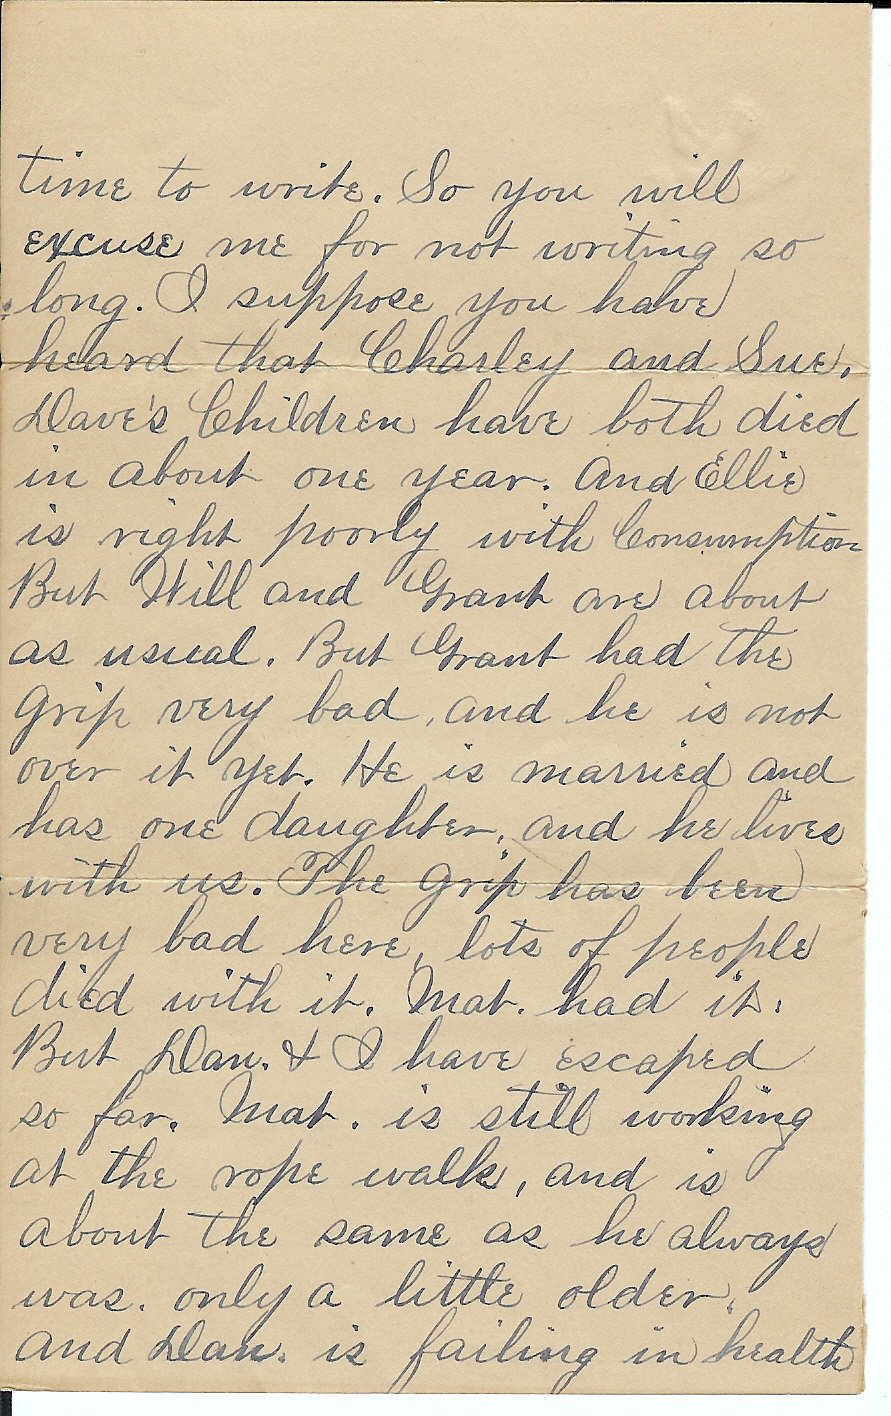 time to write. So you will
excuse me for not writing so
long. I suppose you have
heard that Charley and Sue,
Dave's Children have both died
in about one year. And Ellie
is right poorly with Consumption
But Will and Grant are about
as usual. But Grant had the
Grip very bad, and he is not
over it yet. He is married and
has one daughter, and he lives
with us. The Grip has been
very bad here, lots of people
died with it. Mat. had it.
But Dan. & I have escaped
so far. Mat. is still working
at the rope walk, and is
about the same as he always
was. only a little older.
and Dan. is failing in health